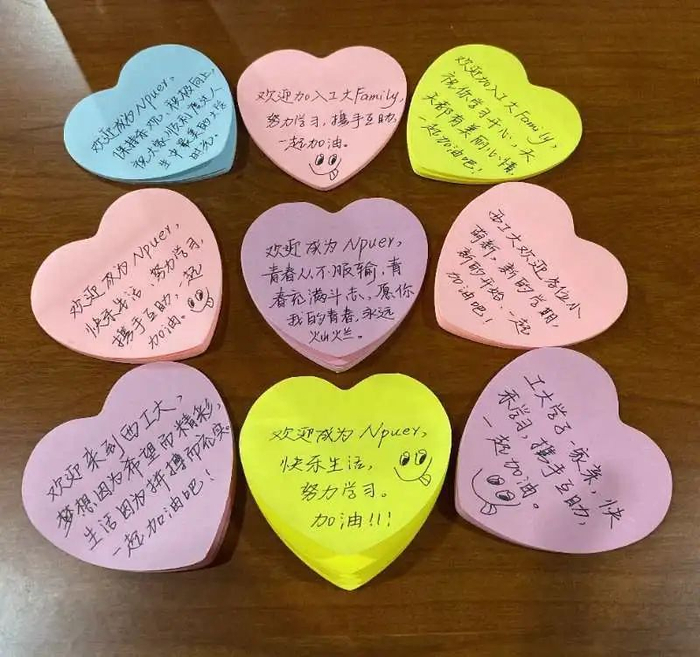 欢迎成为Npuer,
保持乐观,积极向上,
祝大家顺利度过人
生中最美的大学
时光。
欢迎加入工大Family,
努力学习,携手互助,
一起加油。
欢迎加入工大Family,
祝你学习开心,天
天都有美丽心情,
一起加油吧!
欢迎成为Npuer,
快乐生活,努力学习,
携手互助,一起
加油。
欢迎成为Npuer,
青春从不服输,青
春充满斗志,愿你
我的青春,永远
灿烂。
西工大欢迎各位小
萌新,新的学期,
新的开始,一起
加油吧!
欢迎来到西工大,
梦想因为希望而精彩,
生活因为拼搏而充实。
一起加油吧!
欢迎成为Npuer,
快乐生活,
努力学习。
加油!!!
工大学子一家亲,快
乐学习,携手互助,
一起加油。